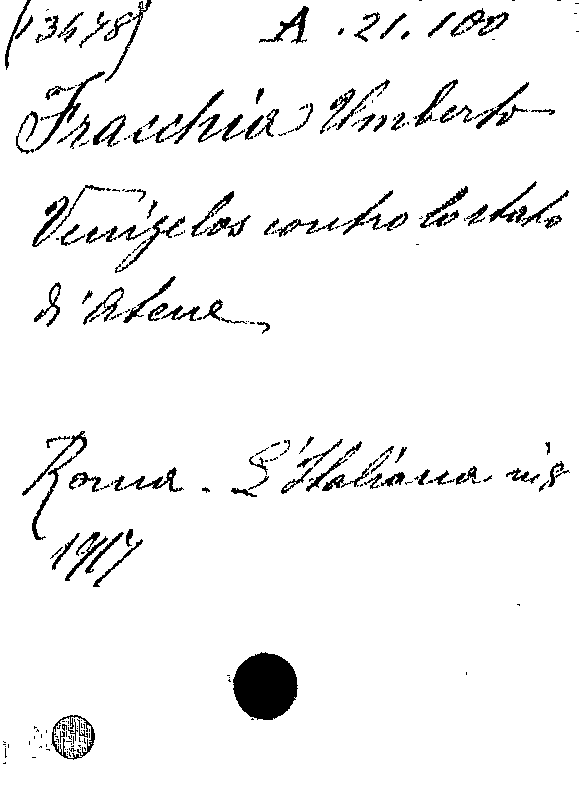 (13678) A.21.100
Fracchia Umberto
Venizelos contro lo stato
di Atene
Roma - L'Italiana
1917